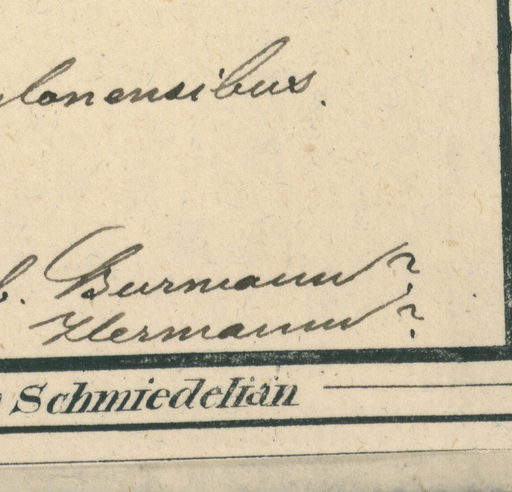 ylonensibus.
b. Burmann?
Hermann?
Schmiedelian